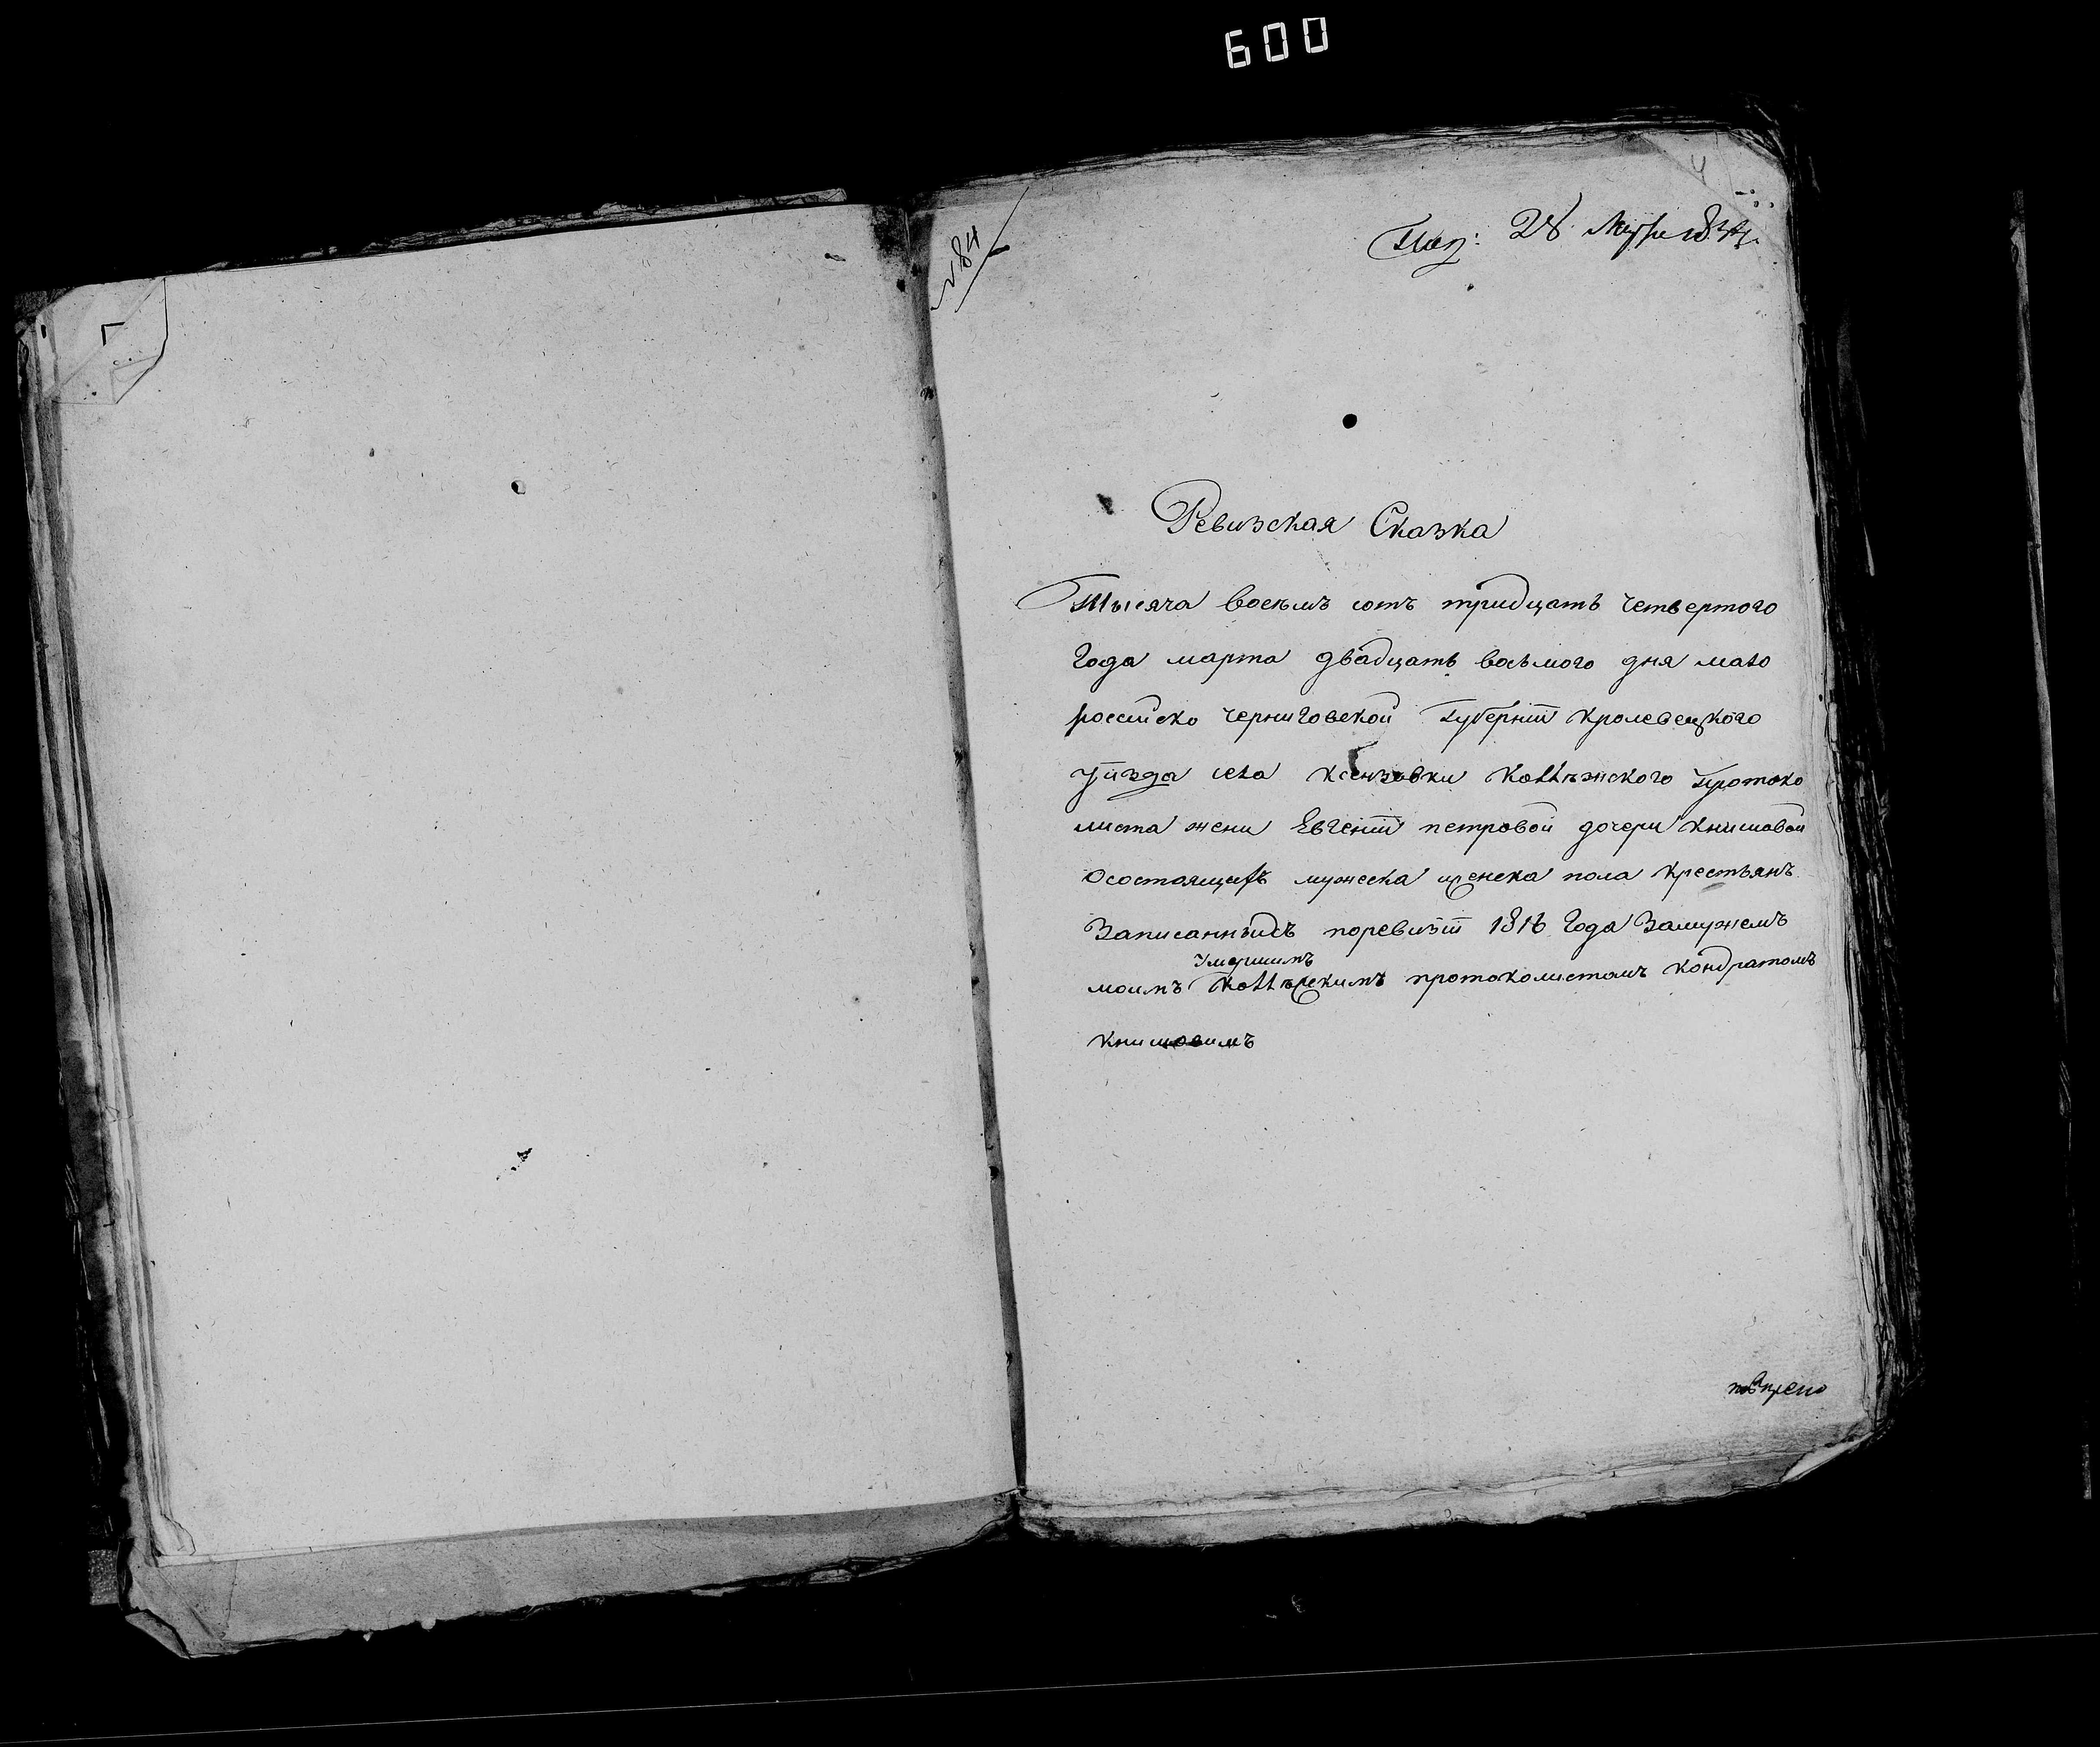 600
4
№ 84
Пол: 28. Марта 1834.
Ревизская Сказка
Тысяча восемъ сотъ тридцать четвертого
Года марта двадцать восьмого дня мало
россійско черниговской Губерніи кролевецкого
Уѣзда села ксензовки коллѣжского протоко
листа жени Евгеніи петровой дочери книшовой
Осостоящихъ мужеска иженска пола крестьянъ
Записаннихъ поревизіи 1816 Года Замужемъ
Умершимъ
моимъ коллѣжскимъ протоколистомъ кондратомъ
книшовимъ